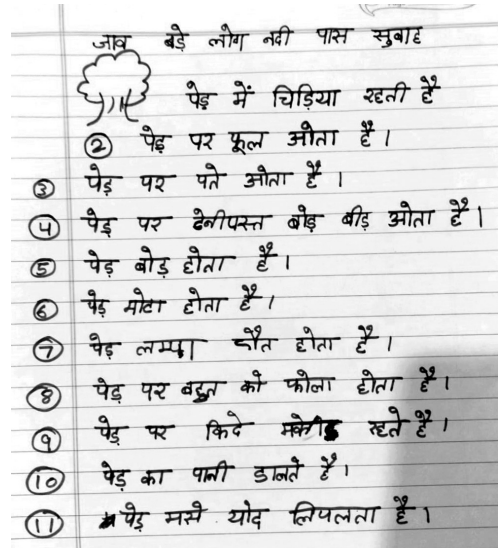 जाव बड़े लोग नदी पास सुबाह
पेड़ में चिड़िया रहती है
② पेड़ पर फूल ओता है।
③ पेड़ पर पते ओता है।
④ पेड़ पर देनीपस्त बोड़ बीड़ ओता है।
⑤ पेड़ बोड़ होता है।
⑥ पेड़ मोटा होता है।
⑦ पेड़ लम्पा होता है।
⑧ पेड़ पर बहुत को फोला होता है।
⑨ पेड़ पर किदे रहते है।
⑩ पेड़ का पानी डालते है।
⑪ पेड़ मसे योद लिपलता है।